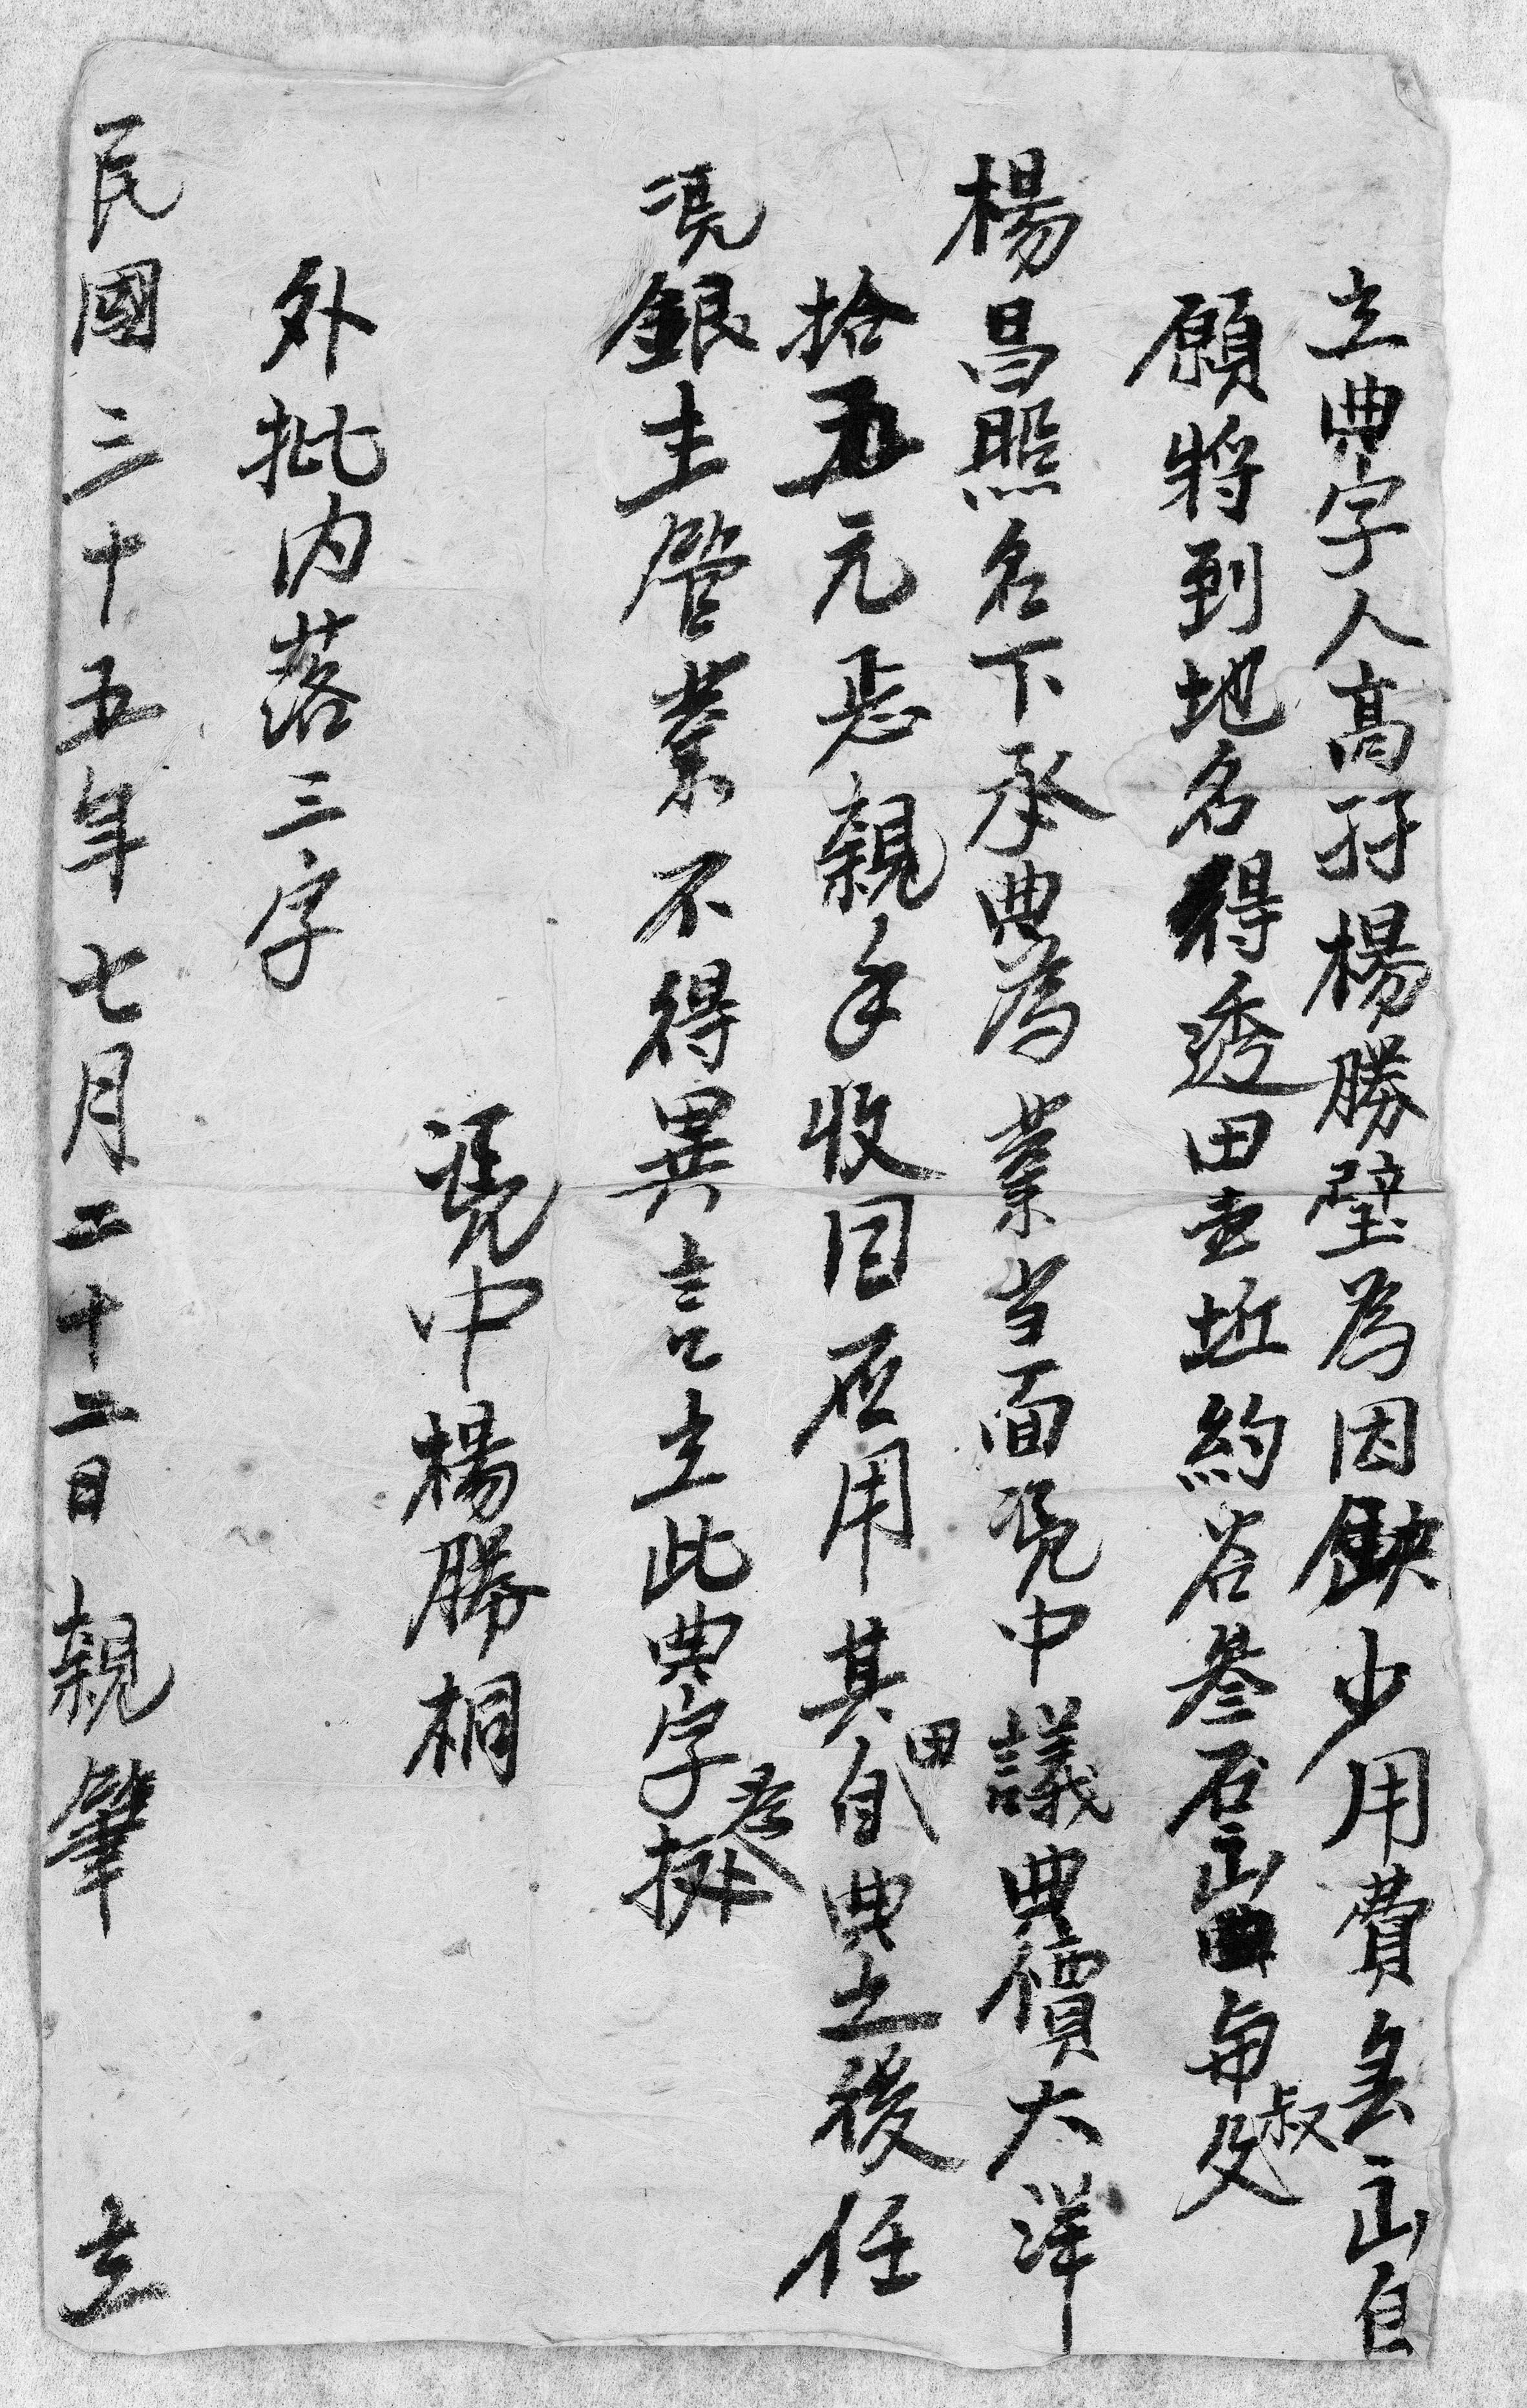 立典字人高孖楊勝璧為因缺少用費無出自
願將到地名得透田壹坵約谷叁石出典与叔父
楊昌照名下承典為業当面凴中議典價大洋
拾五元悉親手收回应用其田自典之後任
凴銀主管業不得異言立此典字為據
凴中楊勝桐
外批内落三字
民國三十五年七月二十二日親筆 立